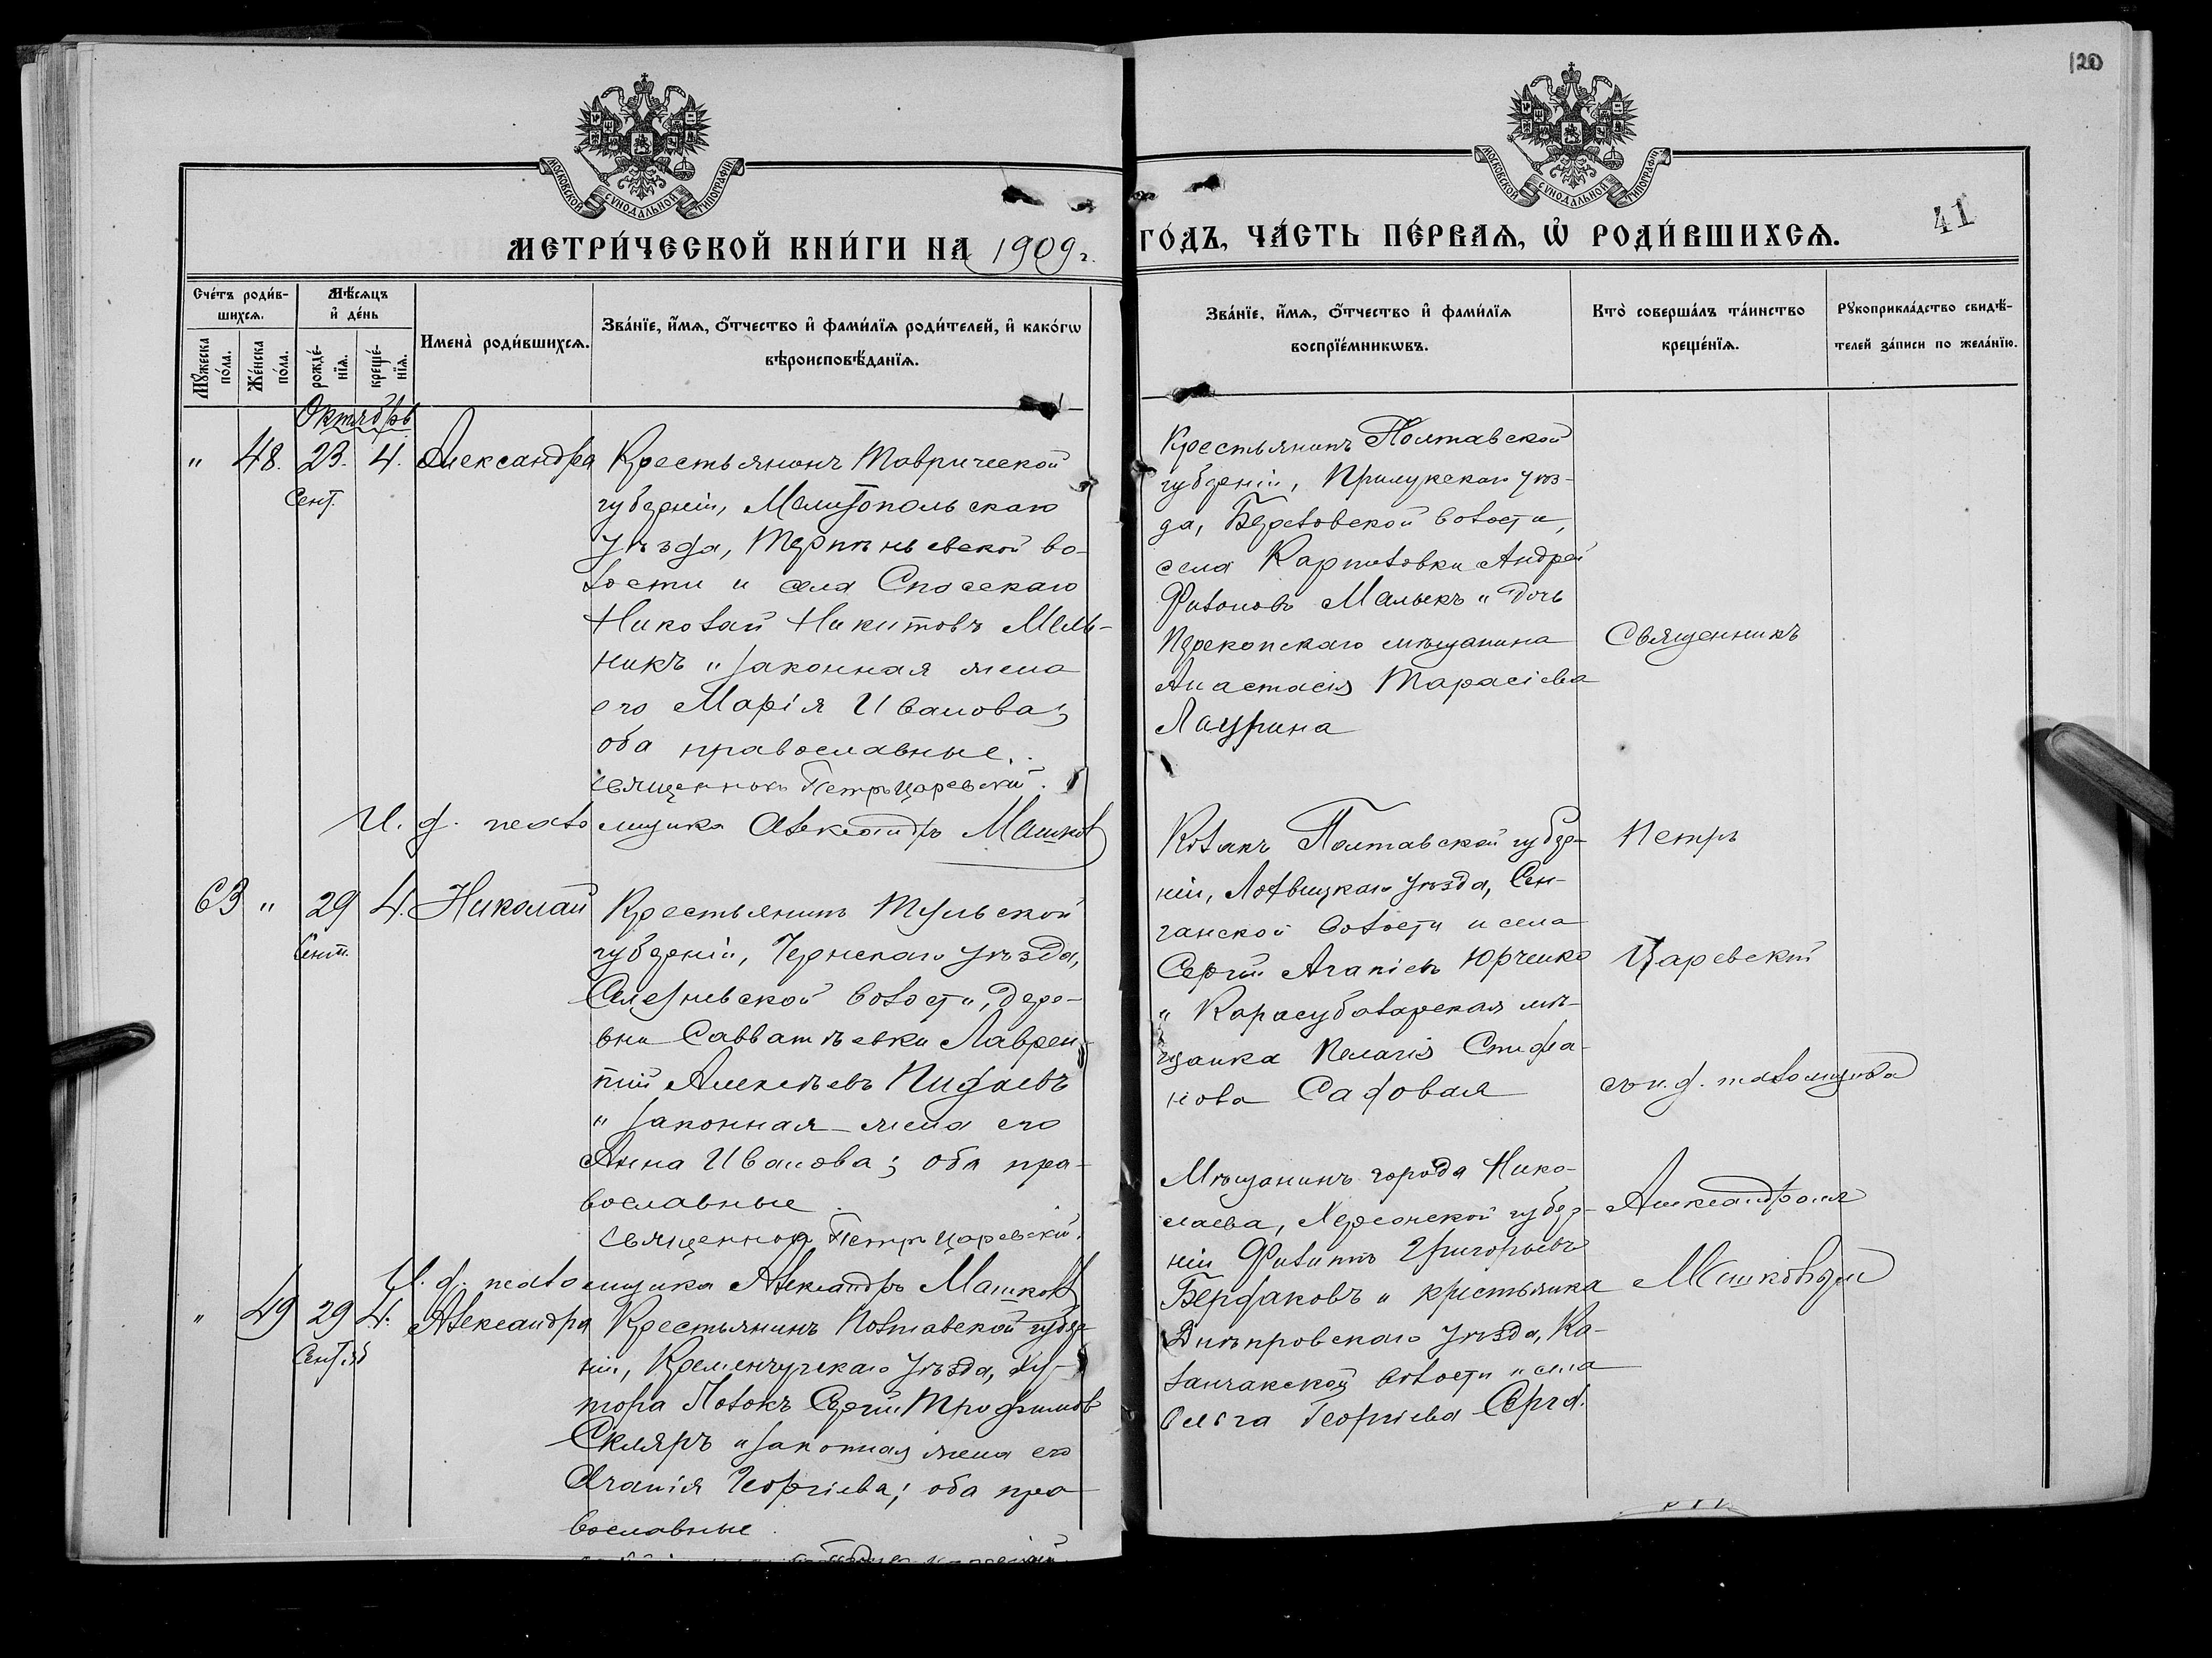 120
МОСКОВСКОЙ СУНОДАЛЬНОЙ ТИПОГРАФІИ
МОСКОВСКОЙ СУНОДАЛЬНОЙ ТИПОГРАФІИ
МЕТРИ́ЧЕСКОЙ КНИ́ГИ НА 1909 г. ГО́ДЪ, ЧА́СТЬ ПЕ́РВАѦ, Ѡ҆ РОДИ́ВШИХСѦ.
41
Сче́тъ роди́в-
шихсѧ.
Мѣ́сѧцъ
и҆ де́нь
Мꙋ́жеска
по́ла.
Же́нска
по́ла.
рожде́-
нїѧ.
креще́-
нїѧ.
Имена̀ роди́вшихсѧ.
Зва́нїе, и҆́мѧ, ѻ҆́тчество и҆ фами́лїѧ роди́телей, и҆ како́гѡ
вѣроисповѣ́данїѧ.
Зва́нїе, и҆́мѧ, ѻ҆́тчество и҆ фами́лїѧ
воспрїе́мникѡвъ.
Кто̀ соверша́лъ та́инство
креще́нїѧ.
Рꙋкоприкла́дство свидѣ́-
телей за́писи по жела́нїю.
Октябрь
" 48. 23. 4. Александра
Сент.
Крестьянинъ Таврической
губерніи, Мелитопольскаго
уѣзда, Терпѣньевской во-
лости и села Спасскаго
Николай Никитовъ Мель-
никъ и законная жена
его Марія Иванова;
оба православные.
Священникъ Петръ Царевскій.
И. д. псаломщика Александръ Машков
Крестьянинъ Полтавской
губерніи, Прилукскаго уѣз-
да, Березовской волости,
села Карпиловки Андрей
Филоновъ Малыкъ и дочь
Перекопскаго мѣщанина
Анастасія Тарасіева
Лаурина
63 " 29 4. Николай
Сент.
Крестьянинъ Тульской
губерніи, Чернскаго уѣзда,
Селезневской волости, дере-
вни Савватѣевки Лаврен-
тій Алексѣевъ
и законная жена его
Анна Иванова; оба пра-
вославные
Священникъ Петръ Царевскій.
И. д. псаломщика Александръ Машковъ
Козакъ Полтавской губер-
ніи, Лохвицкаго уѣзда, Сен-
чанской волости и села
Сергій Агапіевъ Юрченко
и Карасубазарская мѣ-
щанка Пелагія Стефа-
нова Садовая
" 49 29 4. Александра
Сентяб
Крестьянинъ Полтавской губер
ніи, Кременчугскаго уѣзда, ху-
тора Потокъ Сергій Трофимов
Скляръ и законная жена его
Агапія Георгіева; оба пра
вославные
Мѣщанинъ города Нико-
лаева, Херсонской губер-
ніи Филиппъ Григорьевъ
Бердаковъ и крестьянка
Днѣпровскаго уѣзда, Ка-
ланчакской волости и села
Ольга Георгіева
Священникъ
Петръ
Царевскій
съ и. д. псаломщика
Александромъ
Машковымъ